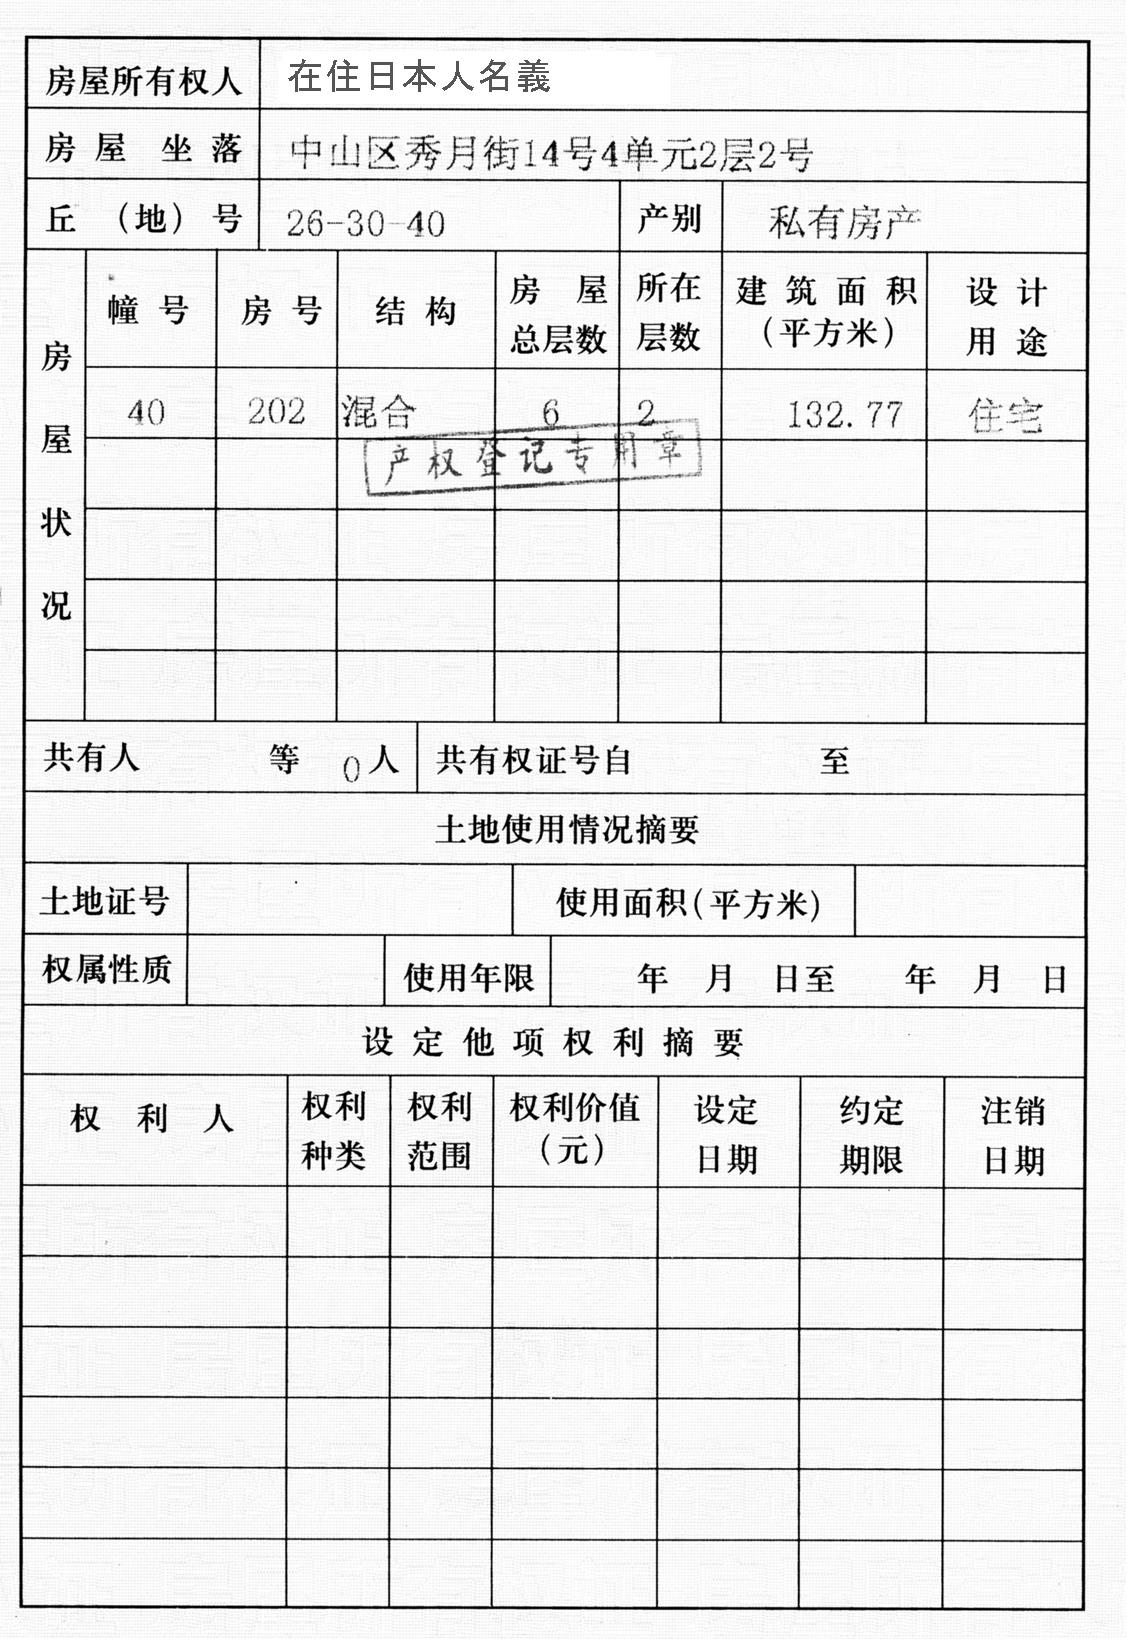 房屋所有权人 在住日本人名義
房屋坐落 中山区秀月街14号4单元2层2号
丘（地）号 26-30-40 产别 私有房产
房屋状况
幢号 房号 结构 房屋总层数 所在层数 建筑面积（平方米） 设计用途
40 202 混合 6 2 132.77 住宅
产权登记专用章
共有人 等 0人 共有权证号自 至
土地使用情况摘要
土地证号 使用面积(平方米)
权属性质 使用年限 年 月 日至 年 月 日
设定他项权利摘要
权利人 权利种类 权利范围 权利价值（元） 设定日期 约定期限 注销日期